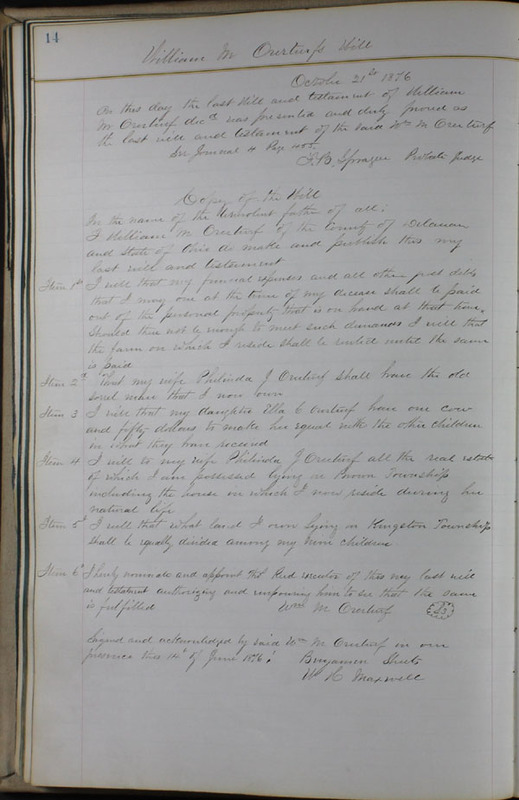 14
William M Overturfs Will
October 21st 1876
On this day the last Will and testament of William
M Overturf decd was presented and duly proved as
the last will and testament of the said Wm M Overturf
See Journal 4 Page 405.
F. B. Sprague Probate Judge
Copy of the Will
In the name of the Benevolent father of all:
I William M Overturf of the County of Delaware
and State of Ohio do make and publish this my
last will and testament
Item 1st I will that my funeral expenses and all other just debts
that I may owe at the time of my decease shall be paid
out of the personal property that is on hand at that time.
Should there not be enough to meet such demands I will that
the farm on which I reside shall be rented until the same
is paid
Item 2d that my wife Philinda J Overturf shall have the old
sorrel mare that I now own
Item 3 I will that my daughter Ella C Overturf have one cow
and fifty dollars to make her equal with the other children
in what they have received
Item 4 I will to my wife Philinda J Overturf all the real estate
of which I am possessed lying in Brown Township
including the house in which I now reside during her
natural life
Item 5 I will that what land I own lying in Kingston Township
shall be equally divided among my nine children
Item 6 I hereby nominate and appoint executor of this my last will
and testament authorizing and empowering him to see that the same
is fulfilled Wm M Overturf
Signed and acknowledged by said Wm M Overturf in our
presence this 14th of June 1876. Benjamin Sheets
W H Maxwell